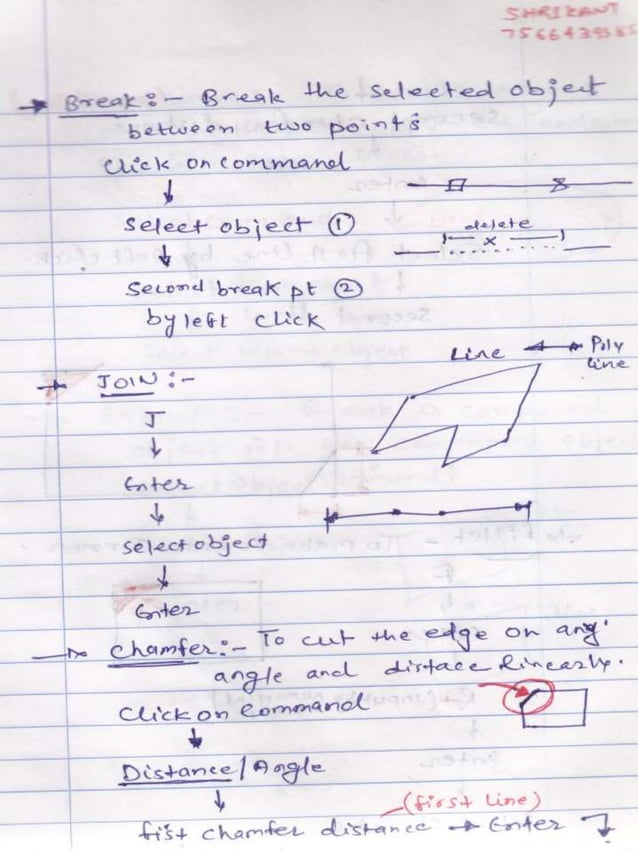 SHRIKANT
→ Break :- Break the selected object
between two points
Click on command
↓
Select object ①
delete
x
↓
Second break pt ②
by left click
Line ↔ Poly line
→ JOIN :-
J
↓
Enter
↓
select object
↓
Enter
→ Chamfer :- To cut the edge on any
angle and distace linearly.
Click on Command
↓
Distance / Angle
↓
(first Line)
fist chamfer distance → Enter ↴